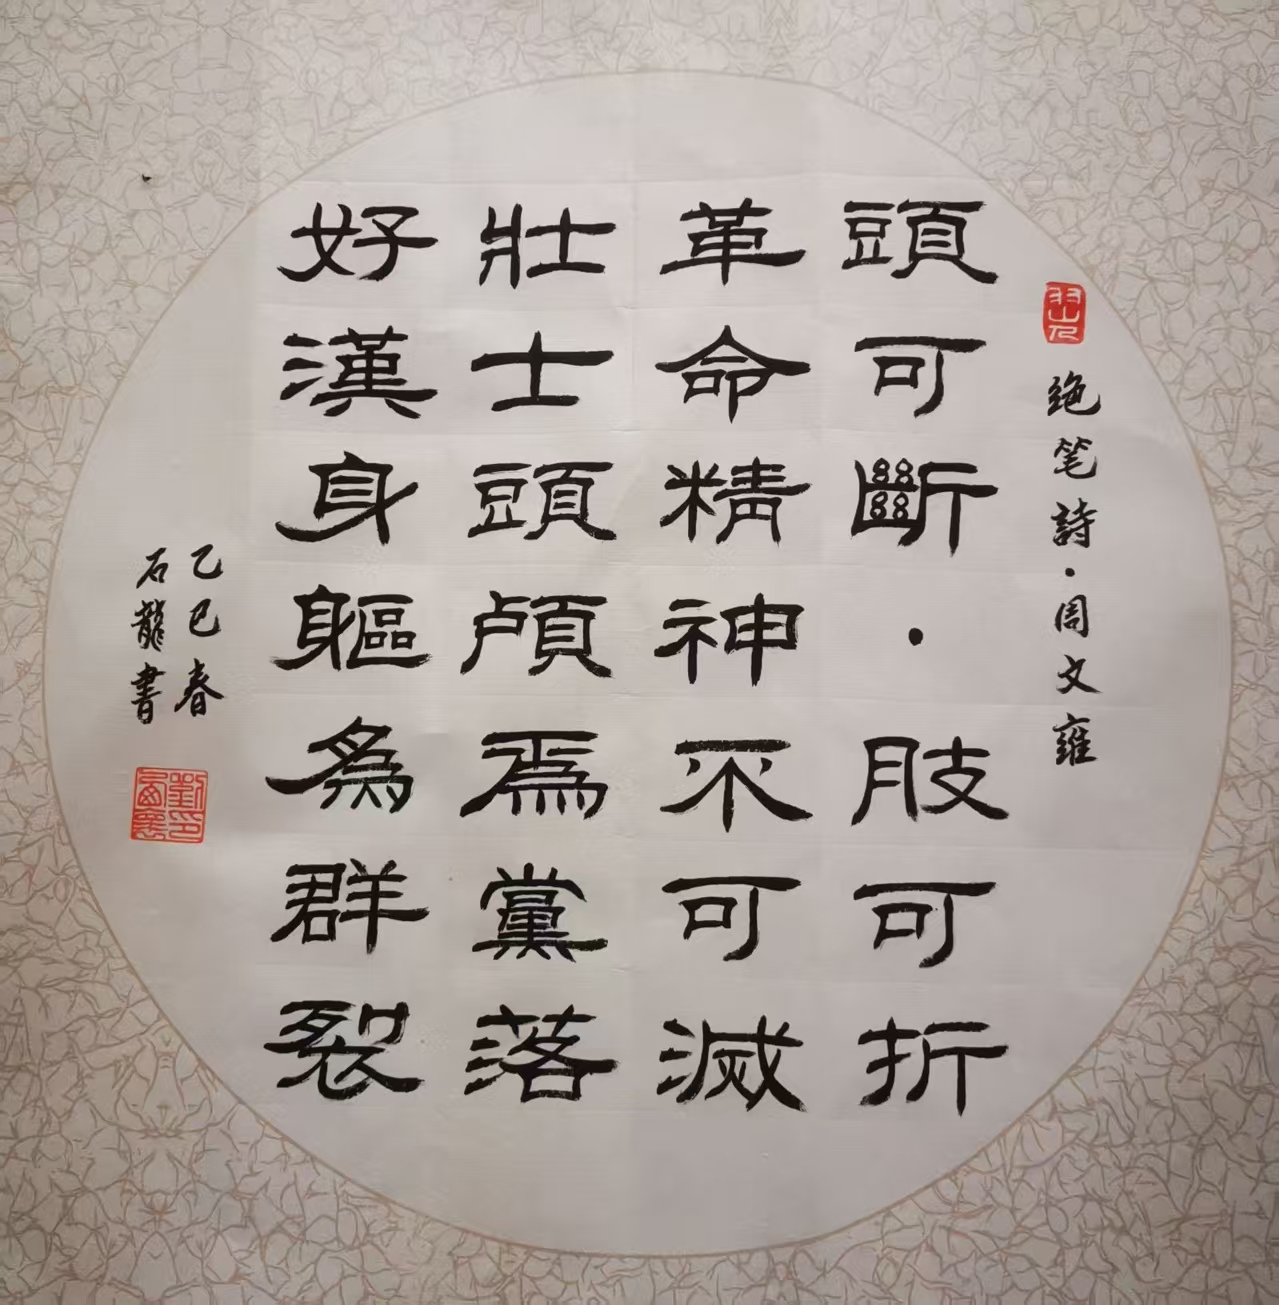 绝笔詩·周文雍
頭可斷·肢可折
革命精神不可滅
壯士頭顱爲黨落
好漢身軀為群裂
乙巳春
石龍書